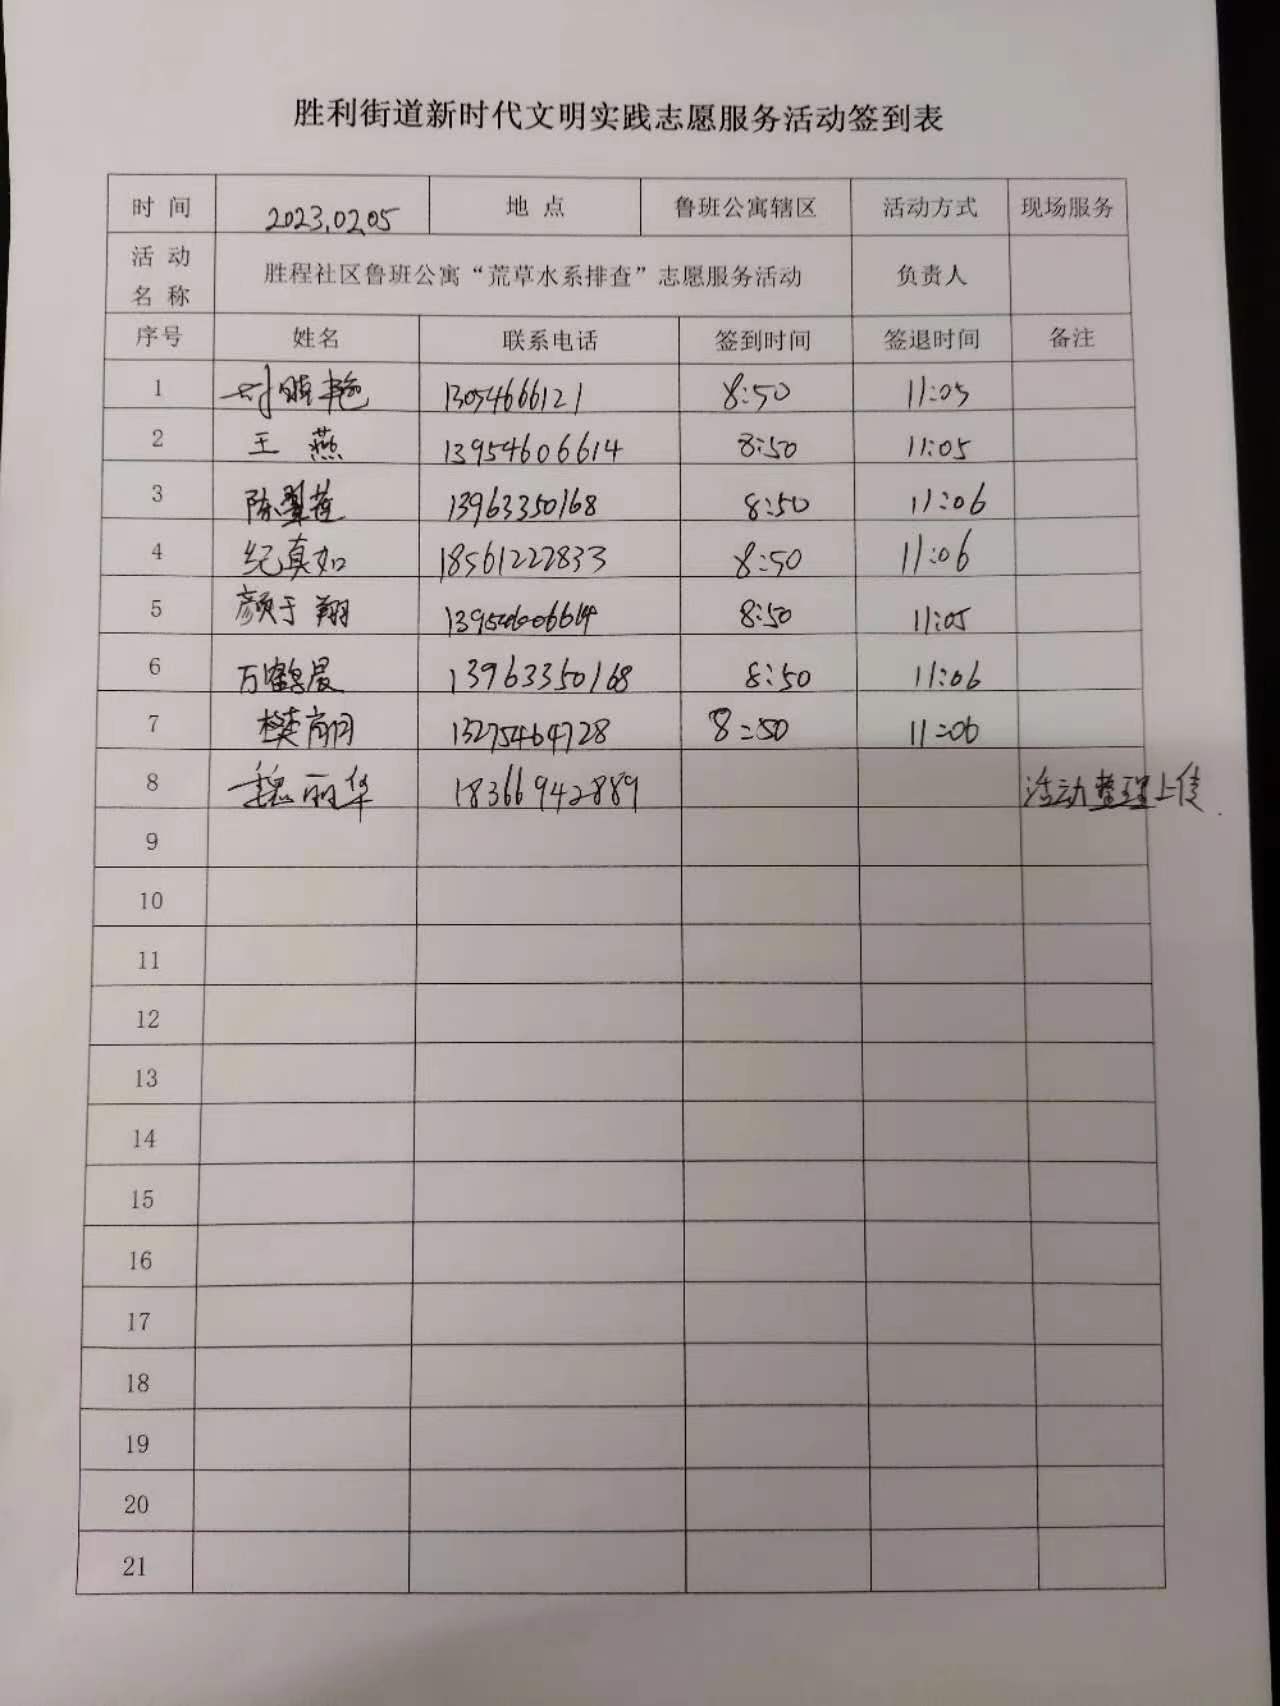 胜利街道新时代文明实践志愿服务活动签到表
时间 2023.02.05 地点 鲁班公寓辖区 活动方式 现场服务
活动名称 胜程社区鲁班公寓“荒草水系排查”志愿服务活动 负责人
序号 姓名 联系电话 签到时间 签退时间 备注
1 13054666121 8:50 11:05
2 王燕 13954606614 8:50 11:05
3 13963350168 8:50 11:06
4 纪真如 18561222833 8:50 11:06
5 颜于翔 13954606614 8:50 11:05
6 万鹤晨 13963350168 8:50 11:06
7 13275464728 8:50 11:06
8 魏丽华 18366942889 活动整理上传.
9
10
11
12
13
14
15
16
17
18
19
20
21